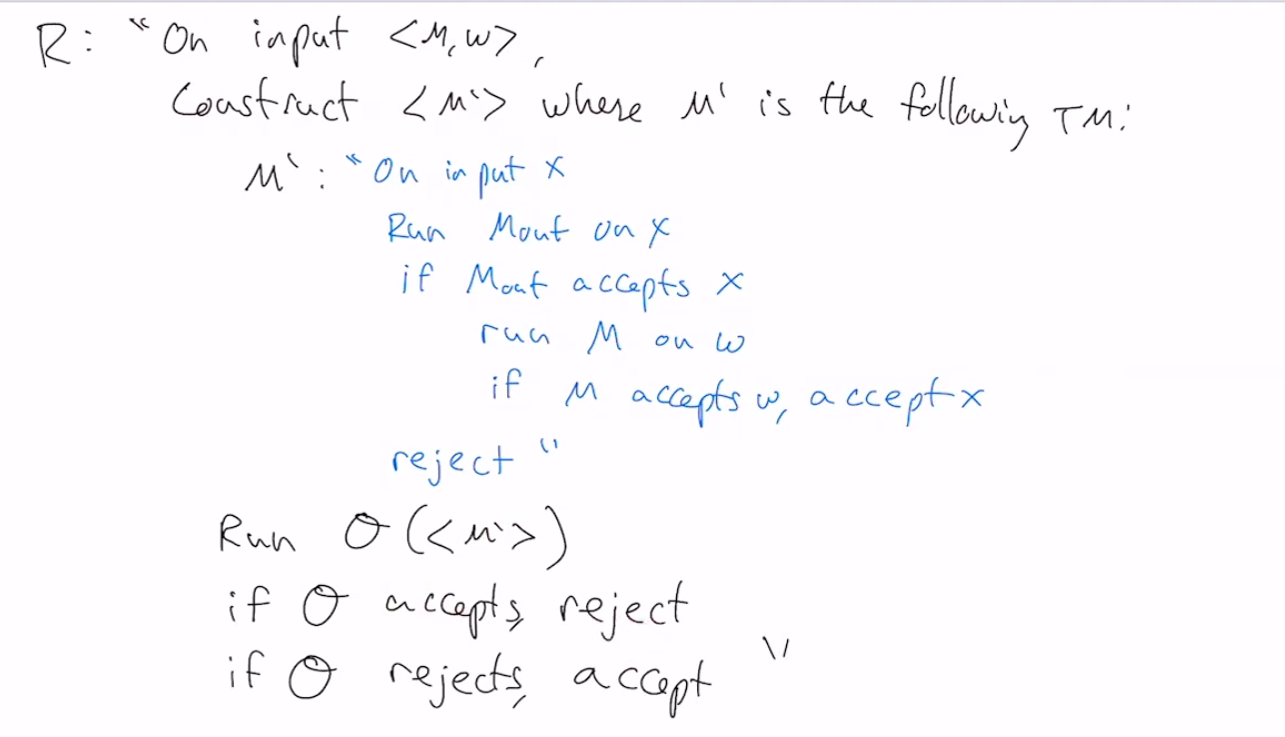 R: "On input <M, w>,
Construct <M'> where M' is the following TM:
M': "On input x
Run Mout on x
if Mout accepts x
run M on w
if M accepts w, accept x
reject"
Run O(<M'>)
if O accepts, reject
if O rejects, accept "